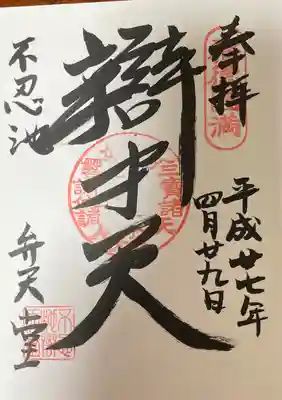 奉拝
平成廿七年
四月廿九日
辨才天
不忍池
弁天堂